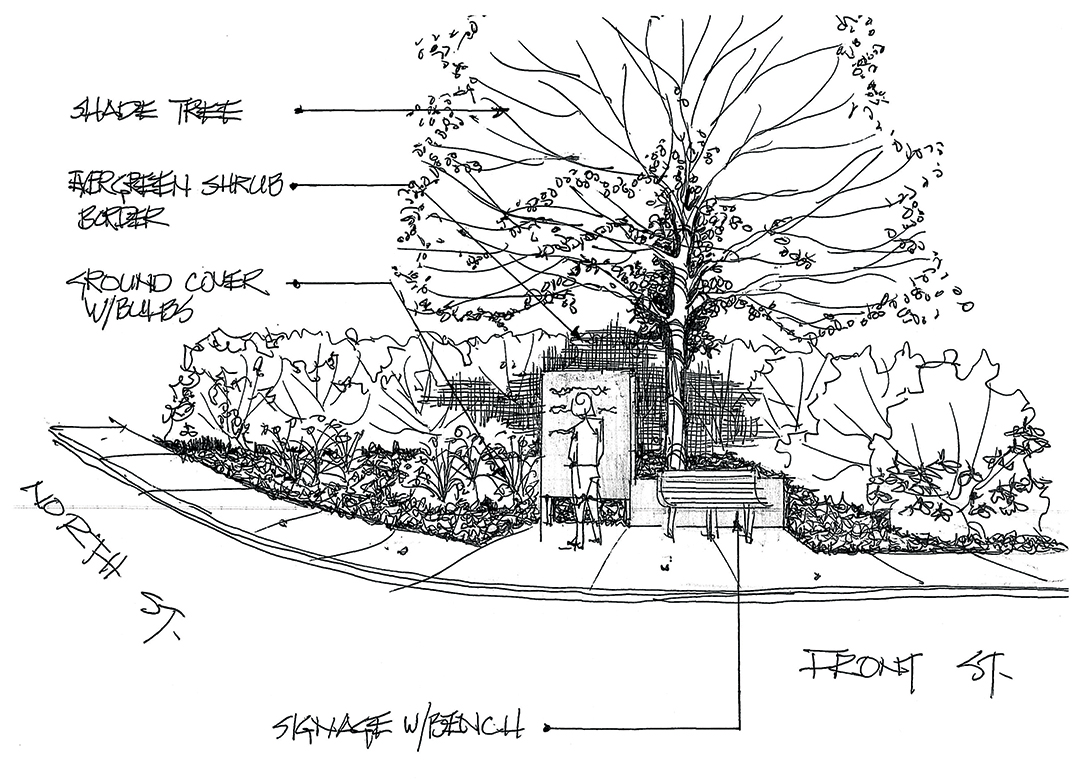 SHADE TREE
EVERGREEN SHRUB
BORDER
GROUND COVER
W/BULBS
NORTH ST.
FRONT ST.
SIGNAGE W/BENCH